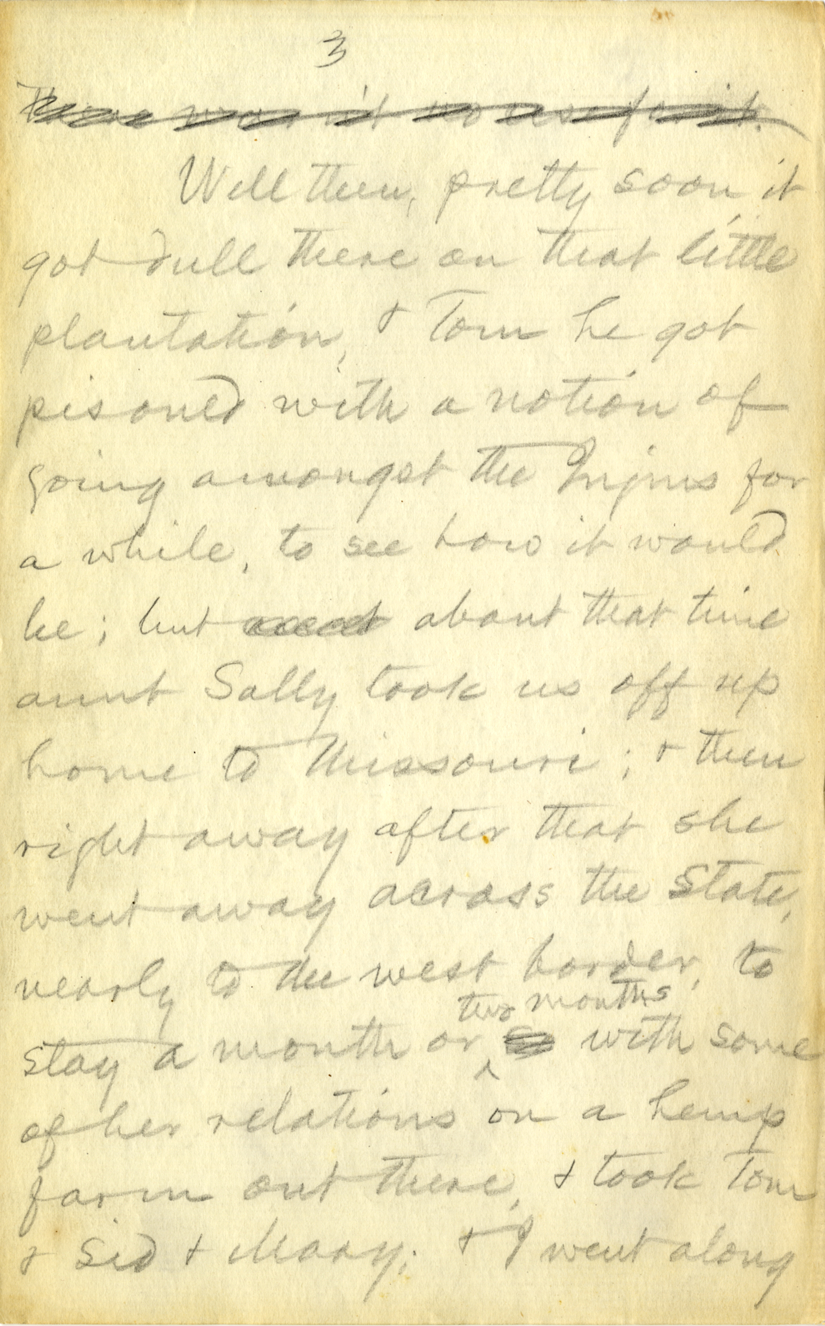 3
There warn't no use for it.
Well then, pretty soon it
got dull there on that little
plantation, & Tom he got
pisoned with a notion of
going amongst the Injuns for
a while, to see how it would
be; but about that time
aunt Sally took us off up
home to Missouri; & then
right away after that she
went away across the State,
nearly to the west border, to
two months
stay a month or with some
of her relations on a hemp
farm out there, & took Tom
& Sid & Mary; & I went along